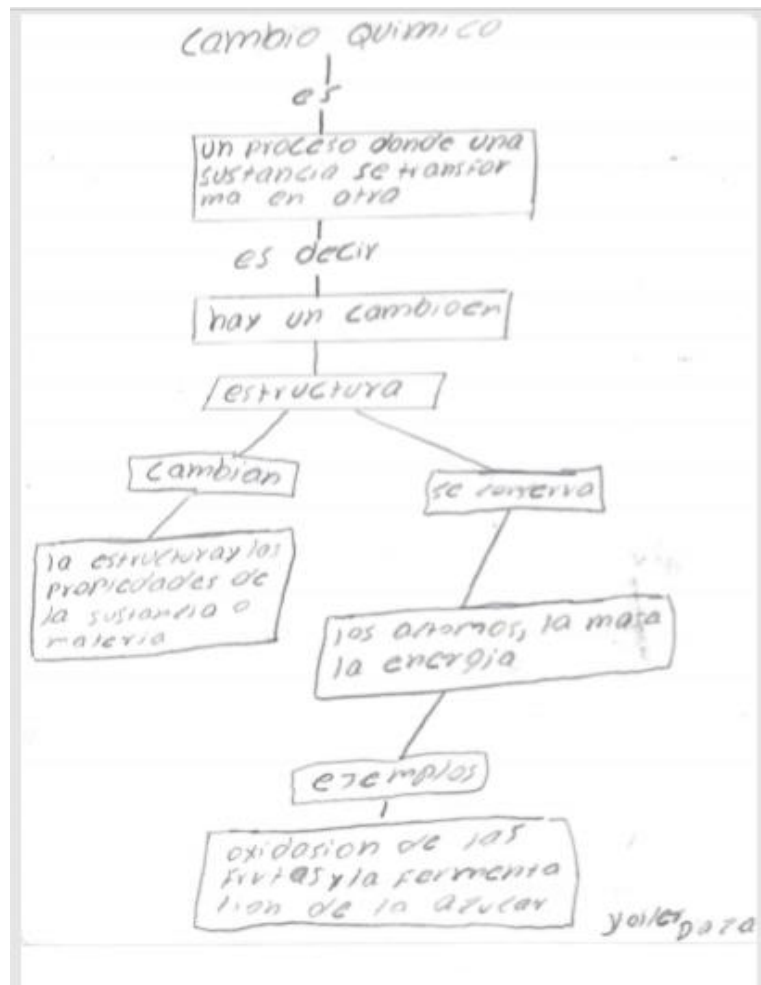 cambio quimico
es
un proceso donde una
sustancia se transfor
ma en otra
es decir
hay un cambioen
estructura
cambian
se conserva
la estructuray las
propiedades de
la sustancia o
materia
los atomos, la masa
la energia
ejemplos
oxidasion de las
frutas y la fermenta
sion de la azucar
yoiler Daza